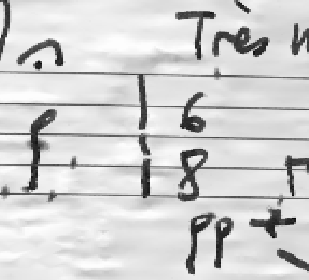 Très
6
8
pp +